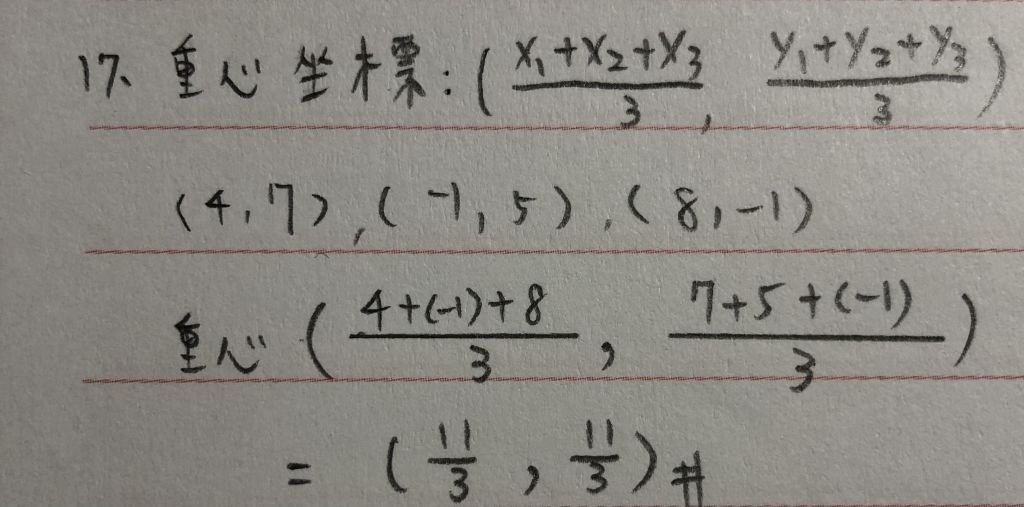 17、重心坐標:(\frac{x₁+x₂+x₃}{3}, \frac{y₁+y₂+y₃}{3})
(4,7),(-1,5),(8,-1)
重心(\frac{4+(-1)+8}{3}, \frac{7+5+(-1)}{3})
=(\frac{11}{3}, \frac{11}{3})#